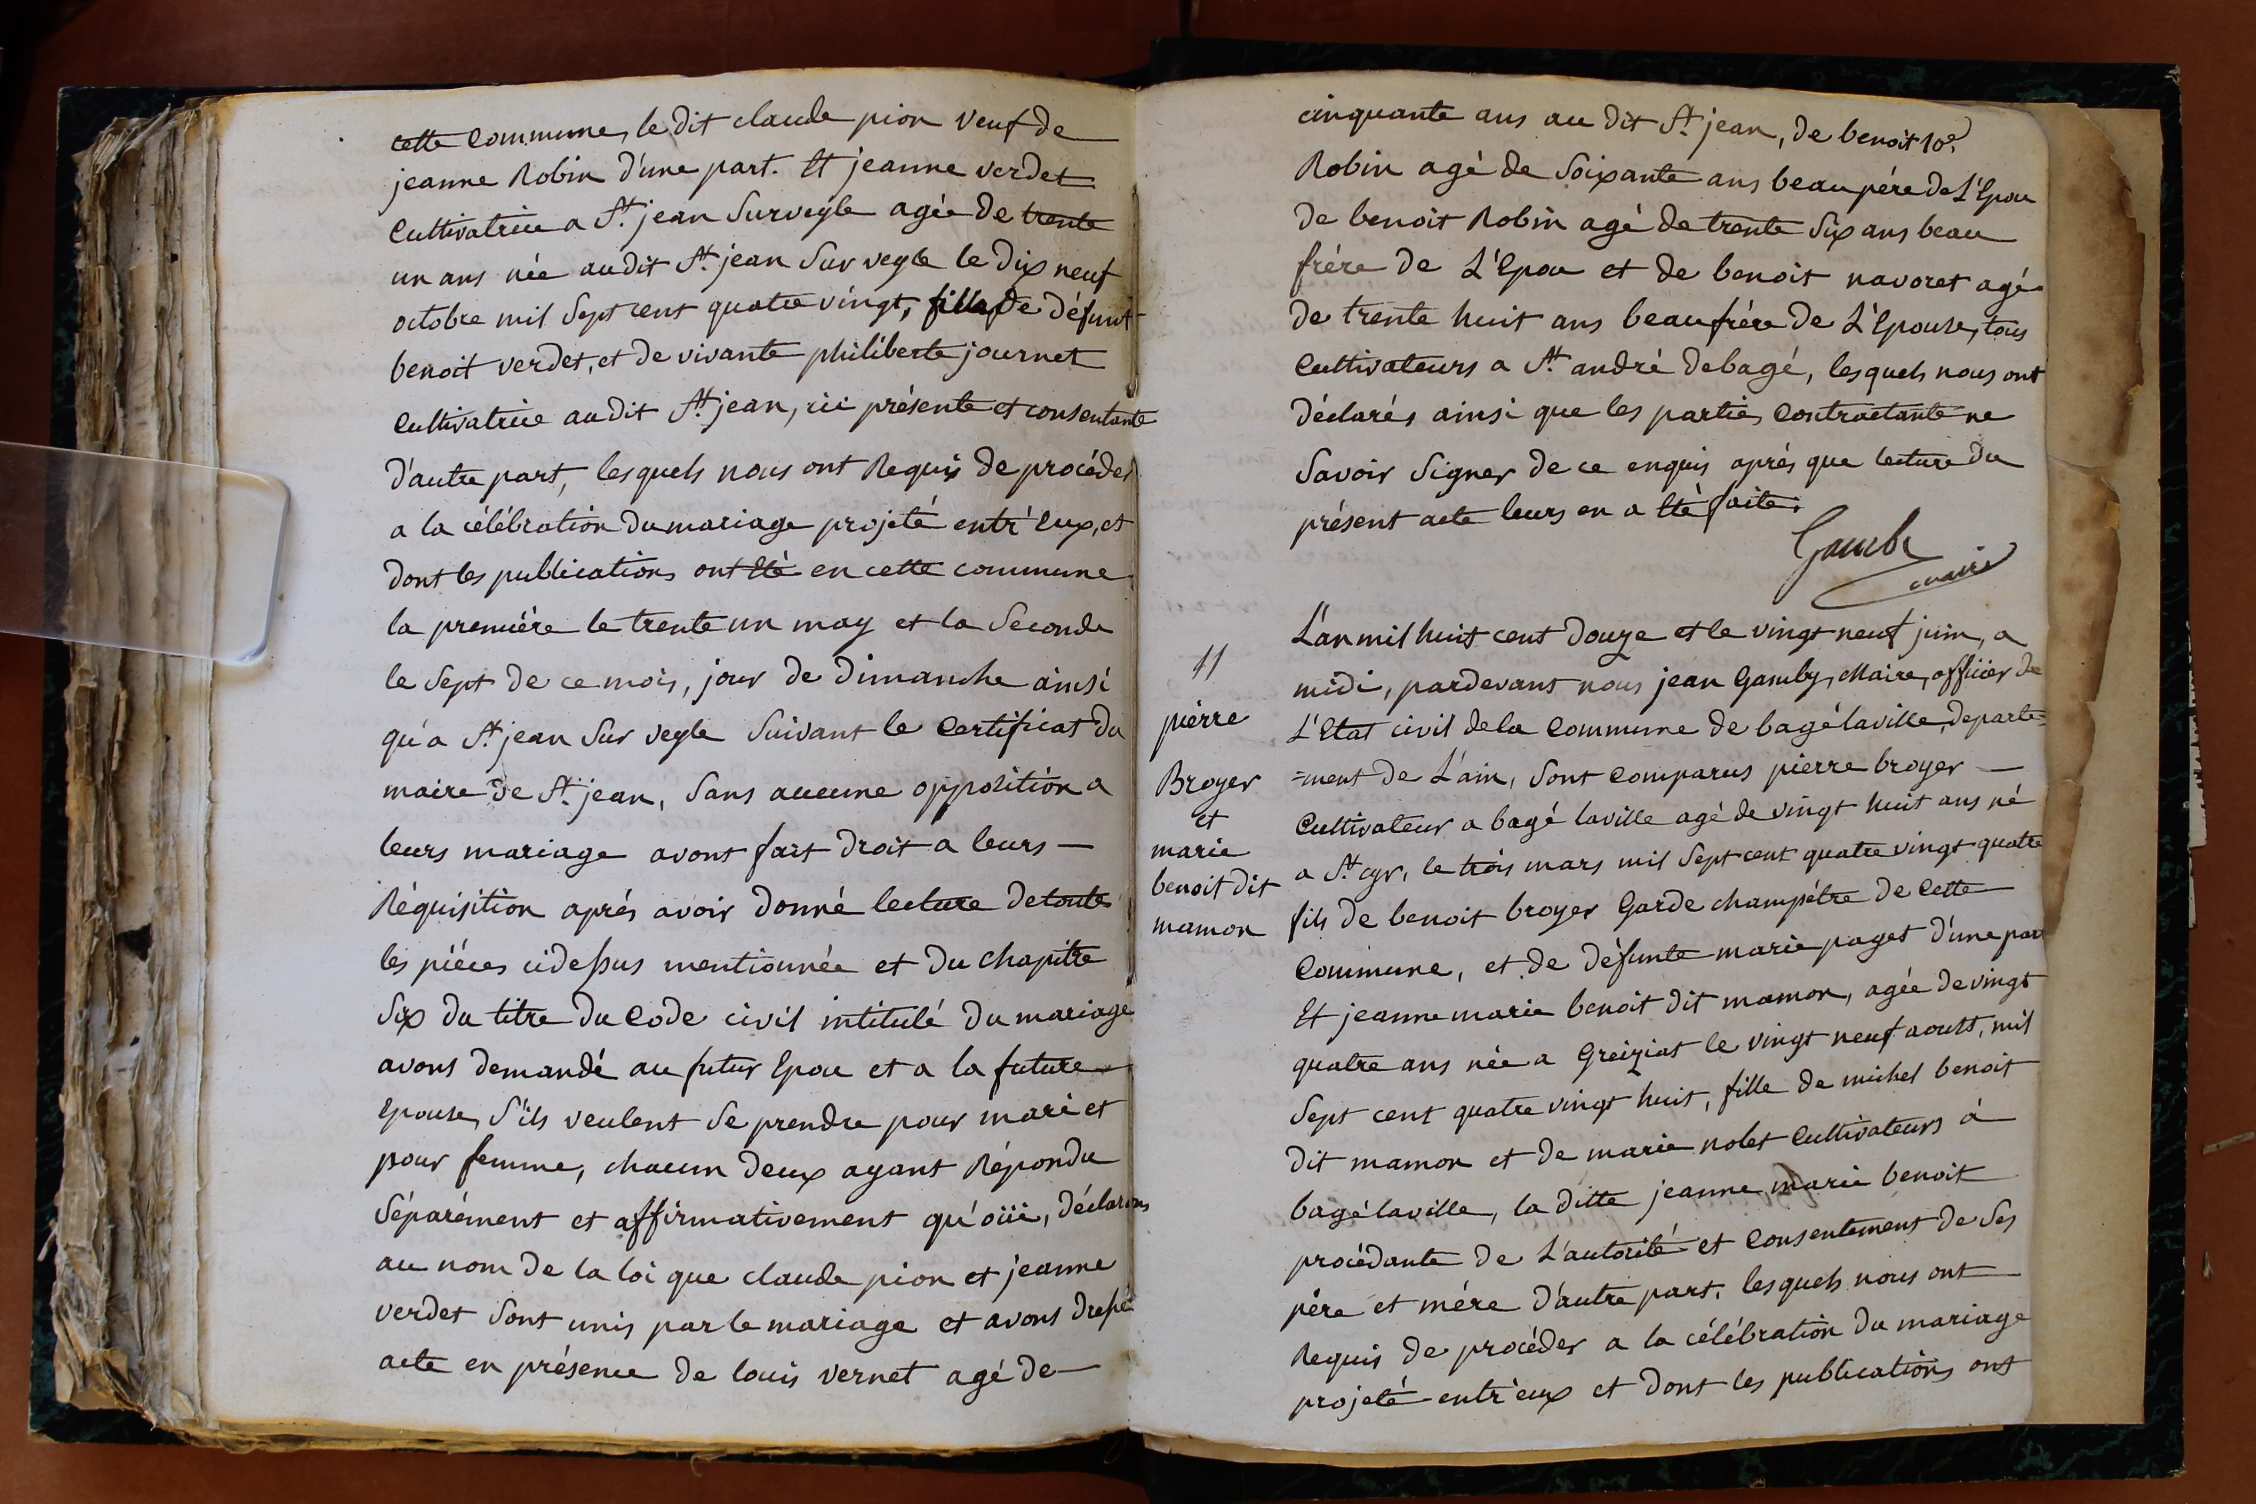 cette commune, le dit claude pion veuf de
jeanne Robin d'une part. Et jeanne verdet
Cultivatrice a St. jean Surveyle agée de trente
un ans née audit St. jean Sur veyle le dix neuf
octobre mil Sept cent quatre vingt, fille de défunt
benoit verdet, et de vivante philiberte journet
Cultivatrice audit St. jean, ici présente et consentante
d'autre part, lesquels nous ont Requis de procéder
a la célébration du mariage projeté entr'Eux, et
dont les publications ont Eté en cette commune
la première le trente un may et la Seconde
le Sept de ce mois, jour de Dimanche ainsi
qu'a St. jean Sur veyle Suivant le Certificat du
maire de St. jean, Sans aucune opposition a
leurs mariage avont fait droit a leurs
Réquisition aprés avoir donné lecture de toute
les piéces cidessus mentionnée et du chapitre
Six du titre du Code civil intitulé du mariage
avons demandé au futur Epou et a la future
Epouse, S'ils veulent Se prendre pour mari et
pour femme, chacun deux ayant Répondu
Séparément et affirmativement qu'oüi, déclarons
au nom de la loi que claude pion et jeanne
verdet Sont unis par le mariage et avons dressé
acte en présence de louis vernet agé de
cinquante ans au dit St. jean, de benoit 10e.
Robin agé de Soixante ans beau pére de L'Epou
de benoit Robin agé de trente Six ans beau
frére de L'Epou et de benoit navoret agé
de trente huit ans beaufrére de L'Epouse, tous
Cultivateurs a St. andré debagé, lesquels nous ont
déclarés ainsi que les parties Contractante ne
Savoir Signer de ce enquis aprés que lecture du
présent acte leurs en a Eté faite.
Gamby
maire
11
pierre
Broyer
et
marie
benoit dit
mamon
L'an mil huit cent douze et le vingt neuf juin, a
midi, pardevant nous jean Gamby, Maire, officier de
L'Etat civil de la Commune de bagé laville, departe=
=ment de L'ain, Sont Comparus pierre broyer
Cultivateur a bagé laville agé de vingt huit ans né
a St. cyr, le trois mars mil Sept cent quatre vingt quatre
fils de benoit broyer Garde champêtre de Cette
Commune, et de défunte marie paget d'une part
Et jeanne marie benoit dit mamon, agée de vingt
quatre ans née a Greiziat le vingt neuf aoust, mil
Sept cent quatre vingt huit, fille de michel benoit
dit mamon et de marie nolet Cultivateurs à
bagé laville, la ditte jeanne marie benoit
procédante de L'autorité et Consentement de Ses
père et mére d'autre part. lesquels nous ont
Requis de procéder a la célébration du mariage
projeté entr'eux et dont les publications ont